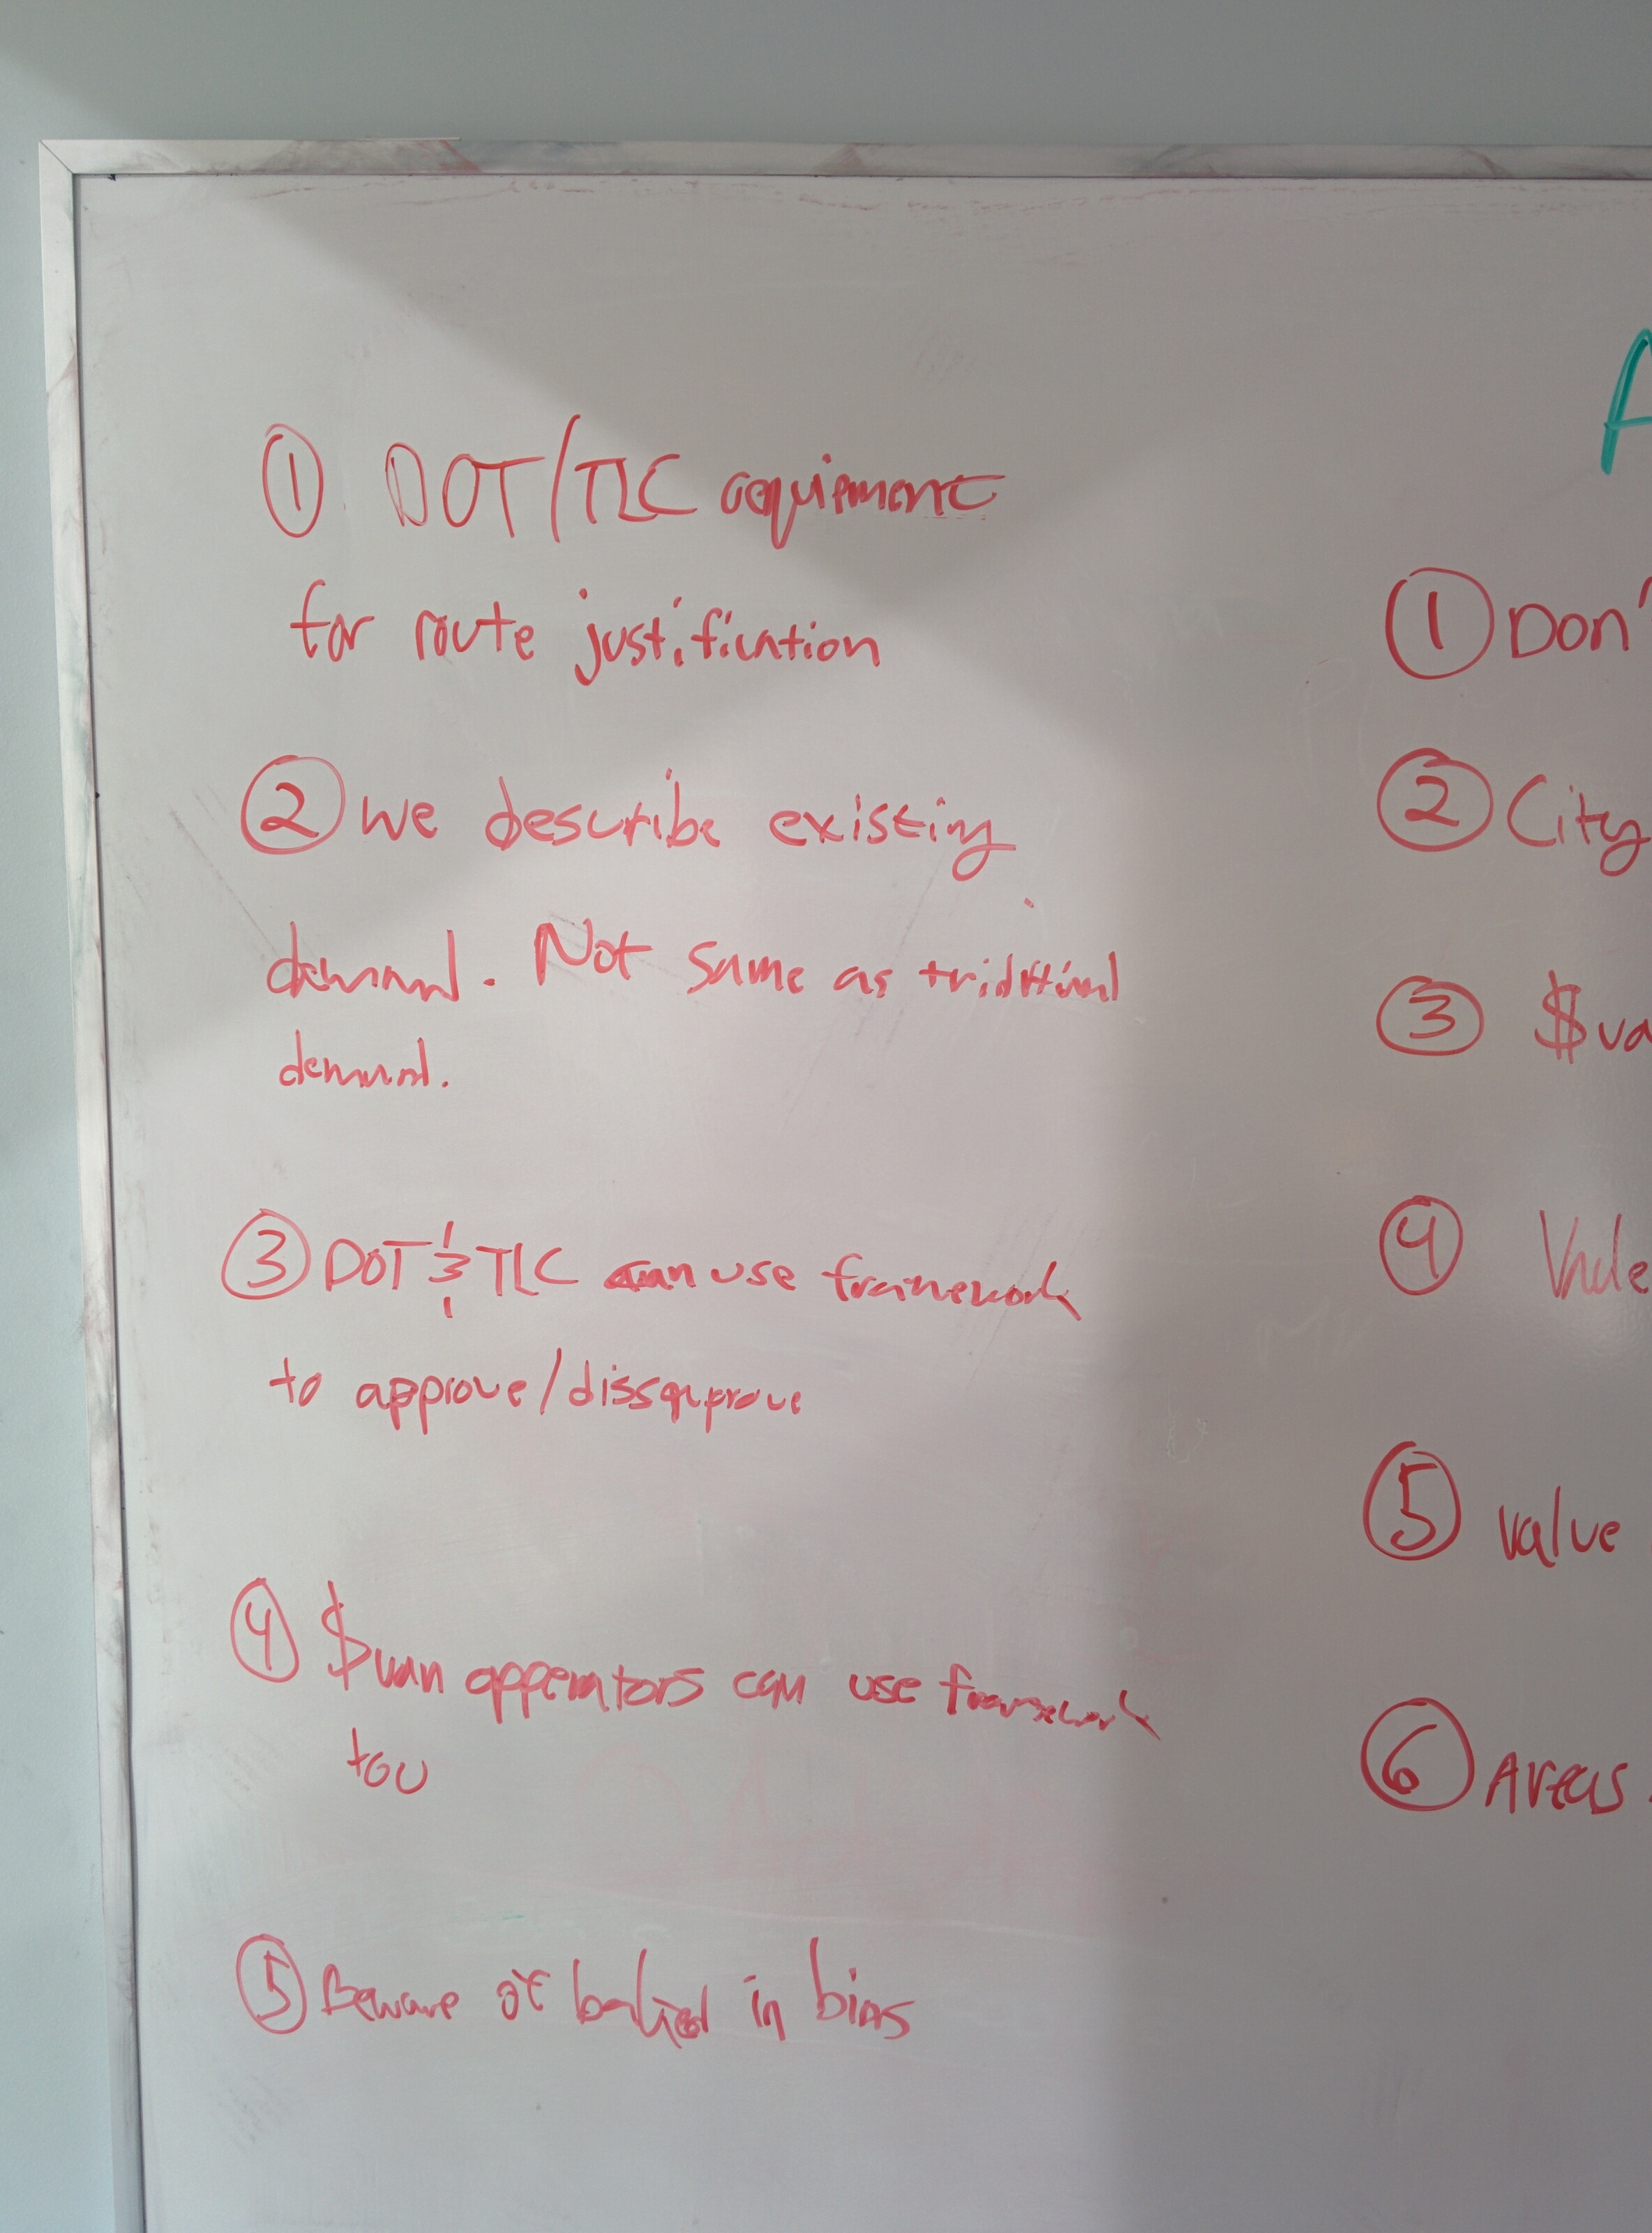 ① DOT/TLC
for route justification
② we describe existing
demand. Not same as
demand.
③ DOT & TLC can use framework
to approve/dissapprove
④ $van opperators can use framework
too
⑤ Beware of baked in bias
A
① Don'
② City
③ $va
④
⑤ value
⑥ Areas